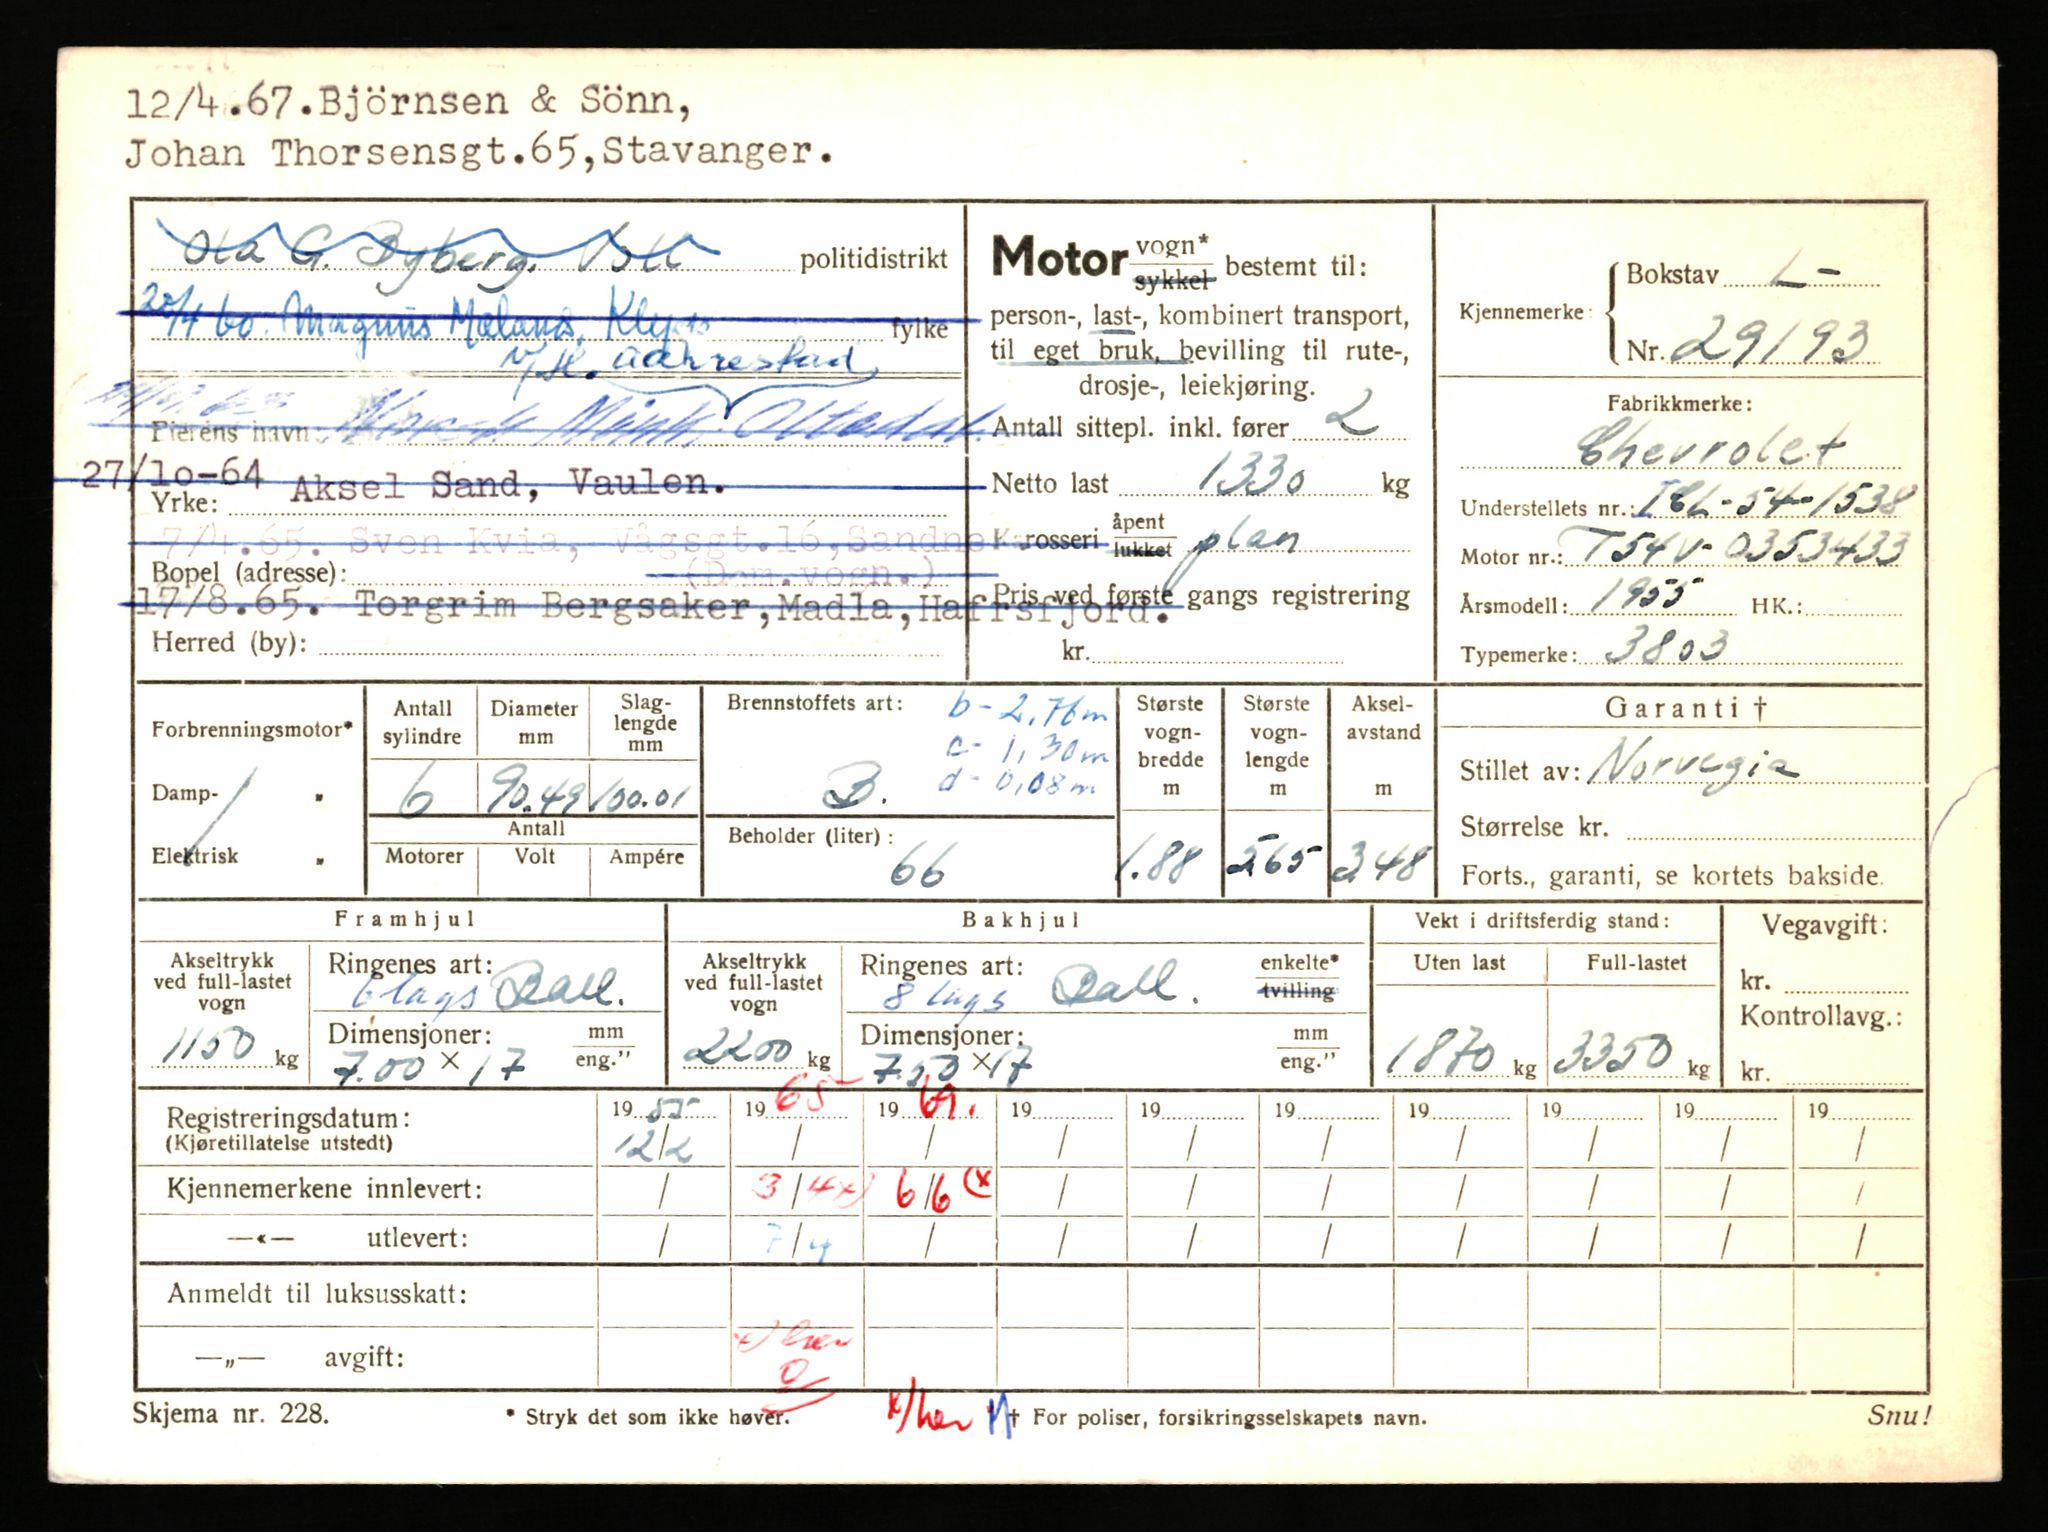 12/4.67.Björnsen & Sönn,
Johan Thorsensgt.65,Stavanger.
Ola G. Byberg, Voll politidistrikt
20/4 60. Magnus Mæland, Klepp fylke
v/H. Aadnrestad
Eierens navn:
27/10-64 Aksel Sand, Vaulen.
Yrke:
7/4.65. Sven Kvia, Vågsgt.16,Sandnes
Bopel (adresse): (Dam.vogn.)
17/8.65. Torgrim Bergsaker,Madla,Hafrsfjord.
Herred (by):
Motor vogn* sykkel bestemt til:
person-, last-, kombinert transport,
til eget bruk, bevilling til rute-,
drosje-, leiekjøring.
Antall sittepl. inkl. fører 2
Netto last 1330 kg
Karosseri åpent lukket plan
Pris ved første gangs registrering
kr.
Kjennemerke: Bokstav L-
Nr. 29193
Fabrikkmerke:
Chevrolet
Understellets nr.: ICL-54-1538
Motor nr.: T54V-0353433
Årsmodell: 1955 HK.:
Typemerke: 3803
Forbrenningsmotor*
Damp- "
Elektrisk "
Antall sylindre Diameter mm Slag-lengde mm
6 90.49 100.01
Antall
Motorer Volt Ampére
Brennstoffets art: b- 2,76m
c- 1,30m
B. d- 0,08m
Beholder (liter):
66
Største vogn-bredde m 1.88
Største vogn-lengde m 565
Aksel-avstand m 348
Garanti †
Stillet av: Norvegia
Størrelse kr.
Forts., garanti, se kortets bakside.
Framhjul
Akseltrykk ved full-lastet vogn
1150 kg
Ringenes art:
6 lags Ball.
Dimensjoner: mm eng."
7.00 × 17
Bakhjul
Akseltrykk ved full-lastet vogn
2200 kg
Ringenes art: enkelte* tvilling
8 lags Ball.
Dimensjoner: mm eng."
7.50 × 17
Vekt i driftsferdig stand:
Uten last Full-lastet
1870 kg 3350 kg
Vegavgift:
kr.
Kontrollavg.:
kr.
Registreringsdatum: 19 55 19 65 19 69. 19 19 19 19 19 19 19
(Kjøretillatelse utstedt) 12/2 / / / / / / / / /
Kjennemerkene innlevert: / 3/4 x) 6/6 (x / / / / / / /
—«— utlevert: / 7/4 / / / / / / / /
Anmeldt til luksusskatt:
x) her
—„— avgift:
0
Skjema nr. 228. * Stryk det som ikke høver. x/her † For poliser, forsikringsselskapets navn. Snu!